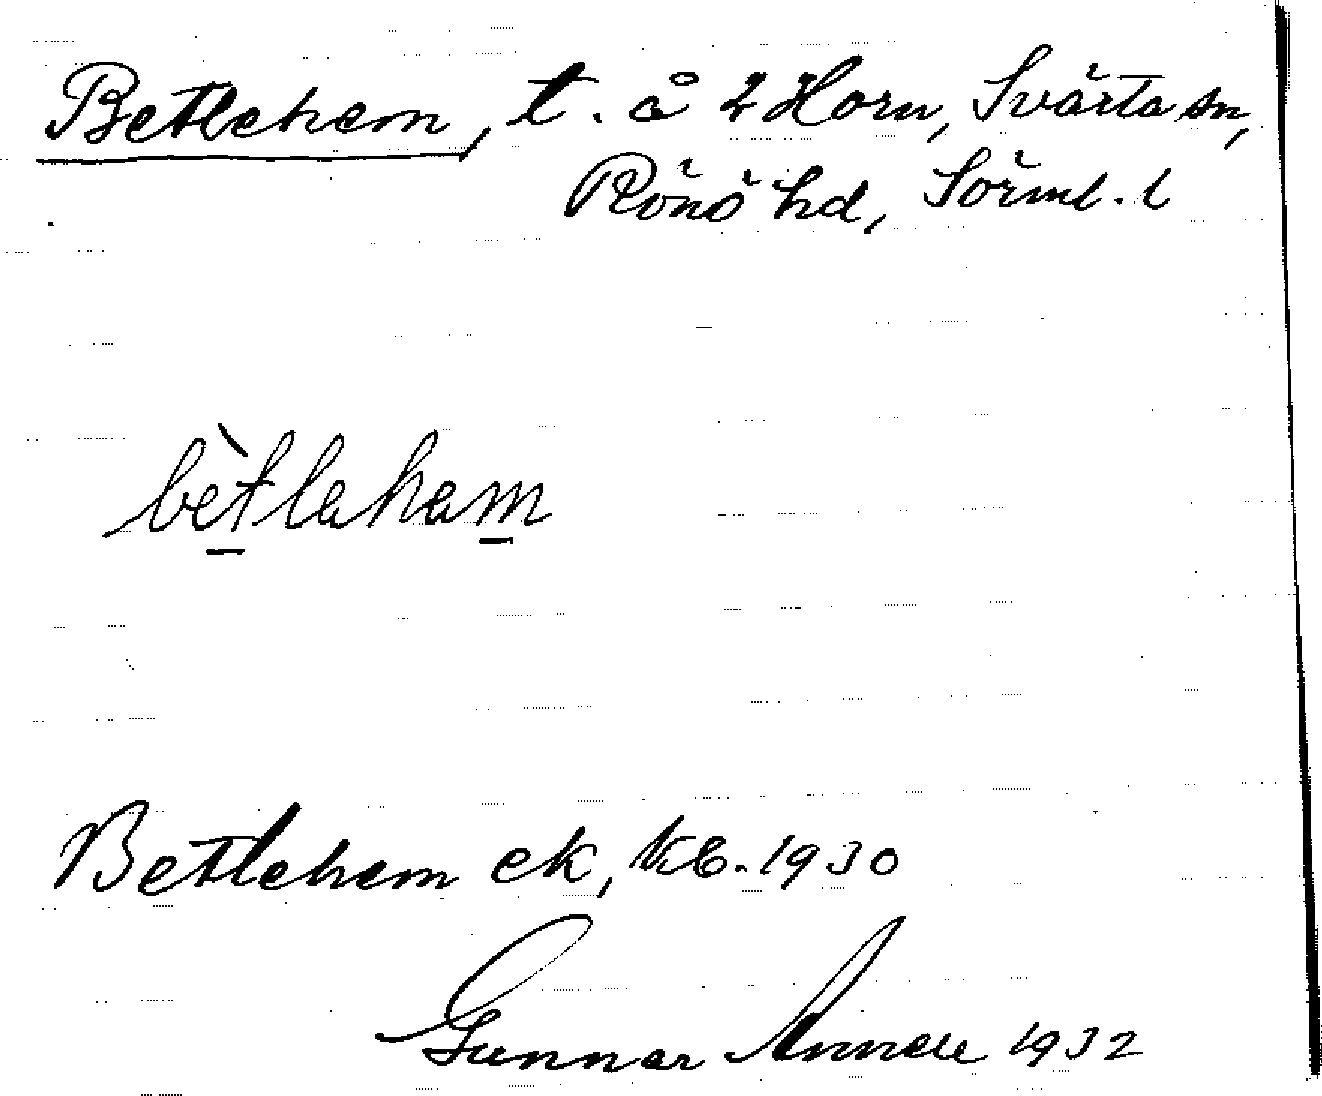 Betlehem, t. å 2 Horn, Svärta sn,
Rönö hd, Sörml. l
bètlaham
Betlehem ek, kb. 1930
Gunnar Annell 1932